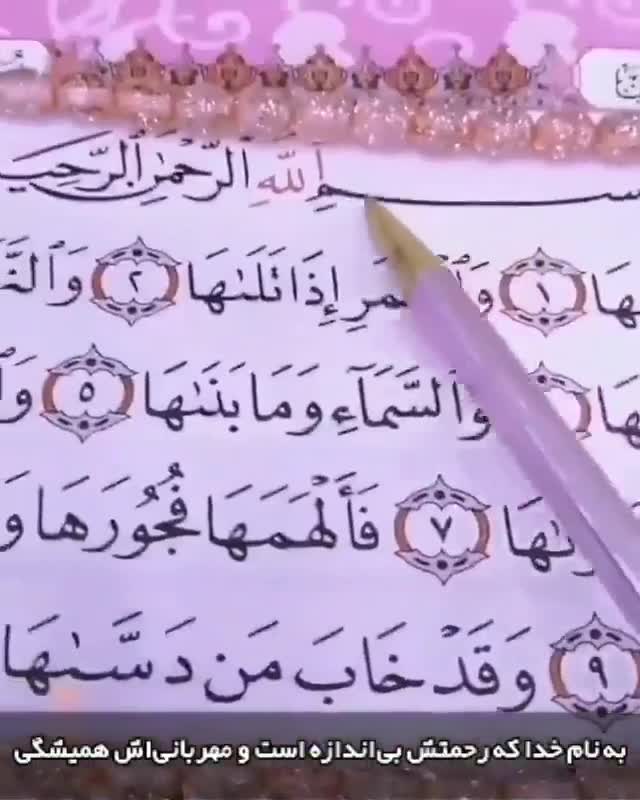 اللَّهِ الرَّحْمَٰنِ الرَّحِيمِ
هَا ١ إِذَا تَلَىٰهَا ٢
هَا وَٱلسَّمَآءِ وَمَا بَنَىٰهَا ٥
٧ فَأَلْهَمَهَا فُجُورَهَا وَ
٩ وَقَدْ خَابَ مَن دَسَّىٰهَا
به نام خدا که رحمتش بی‌اندازه است و مهربانی‌اش همیشگی